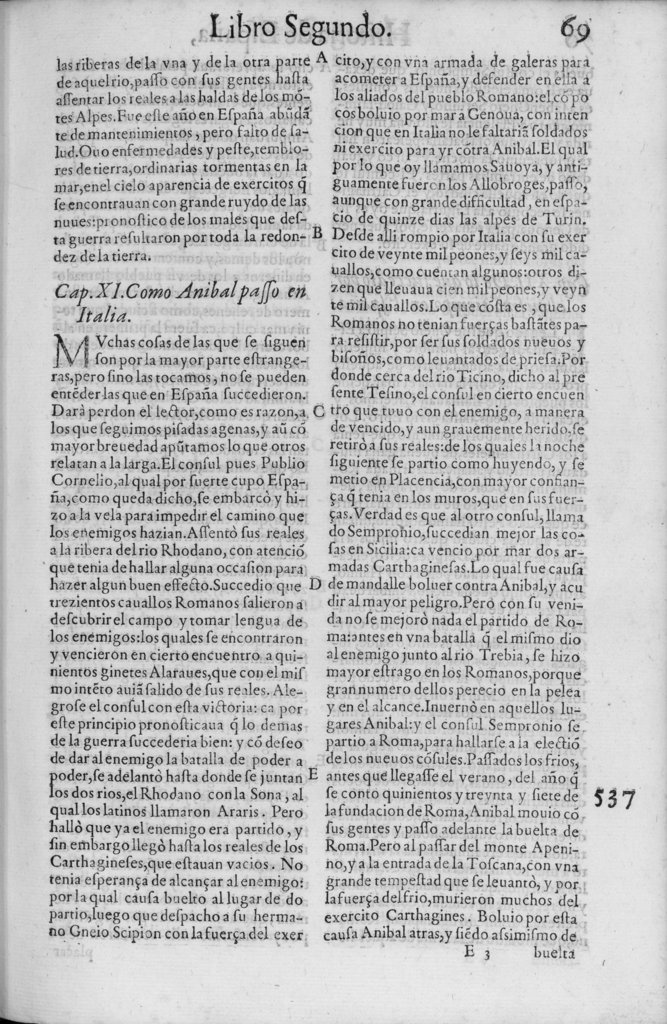 Libro Segundo.
69
las riberas de la vna y de la otra parte
de aquel rio, passo con sus gentes hasta
assentar los reales a las haldas de los mõ-
tes Alpes. Fue este año en España abũdã
te de mantenimientos, pero falto de sa-
lud. Ouo enfermedades y peste, temblo-
res de tierra, ordinarias tormentas en la
mar, en el cielo aparencia de exercitos q̃
se encontrauan con grande ruydo de las
nuues: pronostico de los males que des-
ta guerra resultaron por toda la redon-
dez de la tierra.
Cap. XI. Como Anibal passo en
Italia.
MVchas cosas de las que se siguen
son por la mayor parte estrange-
ras, pero sino las tocamos, no se pueden
entẽder las que en España succedieron.
Darà perdon el lector, como es razon, a
los que seguimos pisadas agenas, y aũ cõ
mayor breuedad apũtamos lo que otros
relatan a la larga. El consul pues Publio
Cornelio, al qual por suerte cupo Espa-
ña, como queda dicho, se embarcò y hi-
zo a la vela para impedir el camino que
los enemigos hazian. Assentò sus reales
a la ribera del rio Rhodano, con atenciõ
que tenia de hallar alguna occasion para
hazer algun buen effecto. Succedio que
trezientos cauallos Romanos salieron a
descubrir el campo y tomar lengua de
los enemigos: los quales se encontraron
y vencieron en cierto encuentro a qui-
nientos ginetes Alaraues, que con el mis
mo intẽto auiã salido de sus reales. Ale-
grose el consul con esta victoria: ca por
este principio pronosticaua q̃ lo demas
de la guerra succederia bien: y cõ deseo
de dar al enemigo la batalla de poder a
poder, se adelantò hasta donde se juntan
los dos rios, el Rhodano con la Sona, al
qual los latinos llamaron Araris. Pero
hallò que ya el enemigo era partido, y
sin embargo llegò hasta los reales de los
Carthagineses, que estauan vacios. No
tenia esperança de alcançar al enemigo:
por la qual causa buelto al lugar de do
partio, luego que despacho a su herma-
no Gneio Scipion con la fuerça del exer
A
B
C
D
E
cito, y con vna armada de galeras para
acometer a España, y defender en ella a
los aliados del pueblo Romano: el cõ po
cos boluio por mar a Genoua, con inten
cion que en Italia no le faltariã soldados
ni exercito para yr cõtra Anibal. El qual
por lo que oy llamamos Sauoya, y anti-
guamente fueron los Allobroges, passo,
aunque con grande difficultad, en espa-
cio de quinze dias las alpes de Turin.
Desde alli rompio por Italia con su exer
cito de veynte mil peones, y seys mil ca-
uallos, como cuentan algunos: otros di-
zen que lleuaua cien mil peones, y veyn
te mil cauallos. Lo que cõsta es, que los
Romanos no tenian fuerças bastãtes pa-
ra resistir, por ser sus soldados nueuos y
bisoños, como leuantados de priesa. Por
donde cerca del rio Ticino, dicho al pre
sente Tesino, el consul en cierto encuen
tro que tuuo con el enemigo, a manera
de vencido, y aun grauemente herido, se
retirò a sus reales: de los quales la noche
siguiente se partio como huyendo, y se
metio en Placencia, con mayor confian-
ça q̃ tenia en los muros, que en sus fuer-
ças. Verdad es que al otro consul, llama
do Sempronio, succedian mejor las co-
sas en Sicilia: ca vencio por mar dos ar-
madas Carthaginesas. Lo qual fue causa
de mandalle boluer contra Anibal, y acu
dir al mayor peligro. Pero con su veni-
da no se mejorò nada el partido de Ro-
ma: antes en vna batalla q̃ el mismo dio
al enemigo junto al rio Trebia, se hizo
mayor estrago en los Romanos, porque
gran numero dellos perecio en la pelea
y en el alcance. Inuernò en aquellos lu-
gares Anibal: y el consul Sempronio se
partio a Roma, para hallarse a la electiõ
de los nueuos cõsules. Passados los frios,
antes que llegasse el verano, del año q̃
se conto quinientos y treynta y siete de
la fundacion de Roma, Anibal mouio cõ
sus gentes y passo adelante la buelta de
Roma. Pero al passar del monte Apeni-
no, y a la entrada de la Toscana, con vna
grande tempestad que se leuantò, y por
la fuerça del frio, murieron muchos del
exercito Carthagines. Boluio por esta
causa Anibal atras, y siẽdo assimismo de
537
E 3
buelta